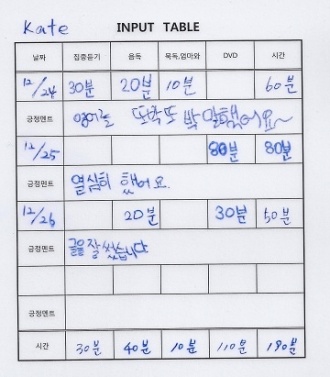 Kate INPUT TABLE
날짜 집중듣기 음독 묵독,엄마와 DVD 시간
12/24 30분 20분 10분 60분
긍정멘트 영어를 또박또박 말했어요~
12/25 80분 80분
긍정멘트 열심히 했어요.
12/26 20분 30분 50분
긍정멘트 글을 잘 썼습니다
긍정멘트
시간 30분 40분 10분 110분 190분